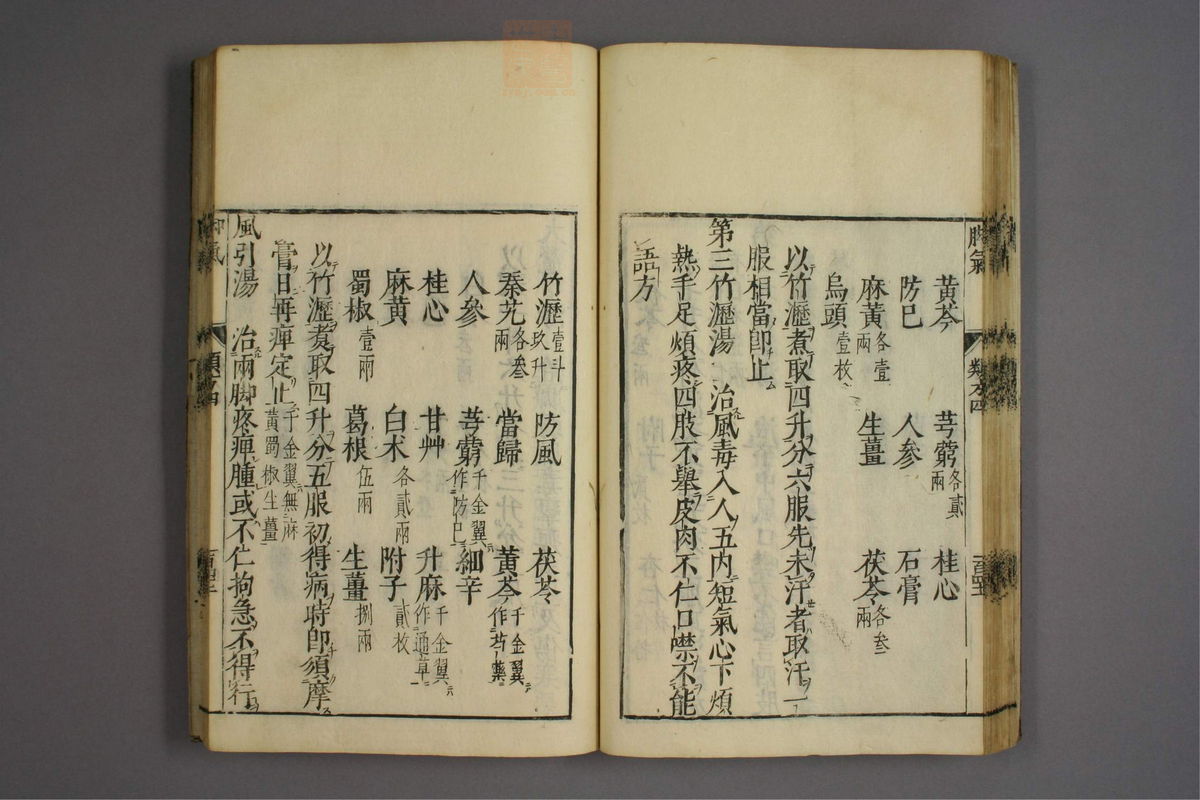 脚氣
類方四
黄芩 芎藭各貳兩 桂心
防巳 人參 石膏
麻黄各壹兩 生薑 茯苓各叁兩
烏頭壹枚
以竹瀝煮取四升分六服先未汗者取汗一
服相當卽止
第三竹瀝湯 治風毒入人五内短氣心下煩
熱手足煩疼四肢不舉皮肉不仁口噤不能
語方
竹瀝壹斗玖升 防風 茯苓
秦艽各叁兩 當歸 黄芩千金翼作芍藥
人參 芎藭千金翼作防巳 細辛
桂心 甘艸 升麻千金翼作通草
麻黄 白术各貳兩 附子貳枚
蜀椒壹兩 葛根伍兩 生薑捌兩
以竹瀝煮取四升分五服初得病時卽須摩
膏日再痺定止千金翼無麻黄蜀椒生薑
風引湯 治兩脚疼痺腫或不仁拘急不得行